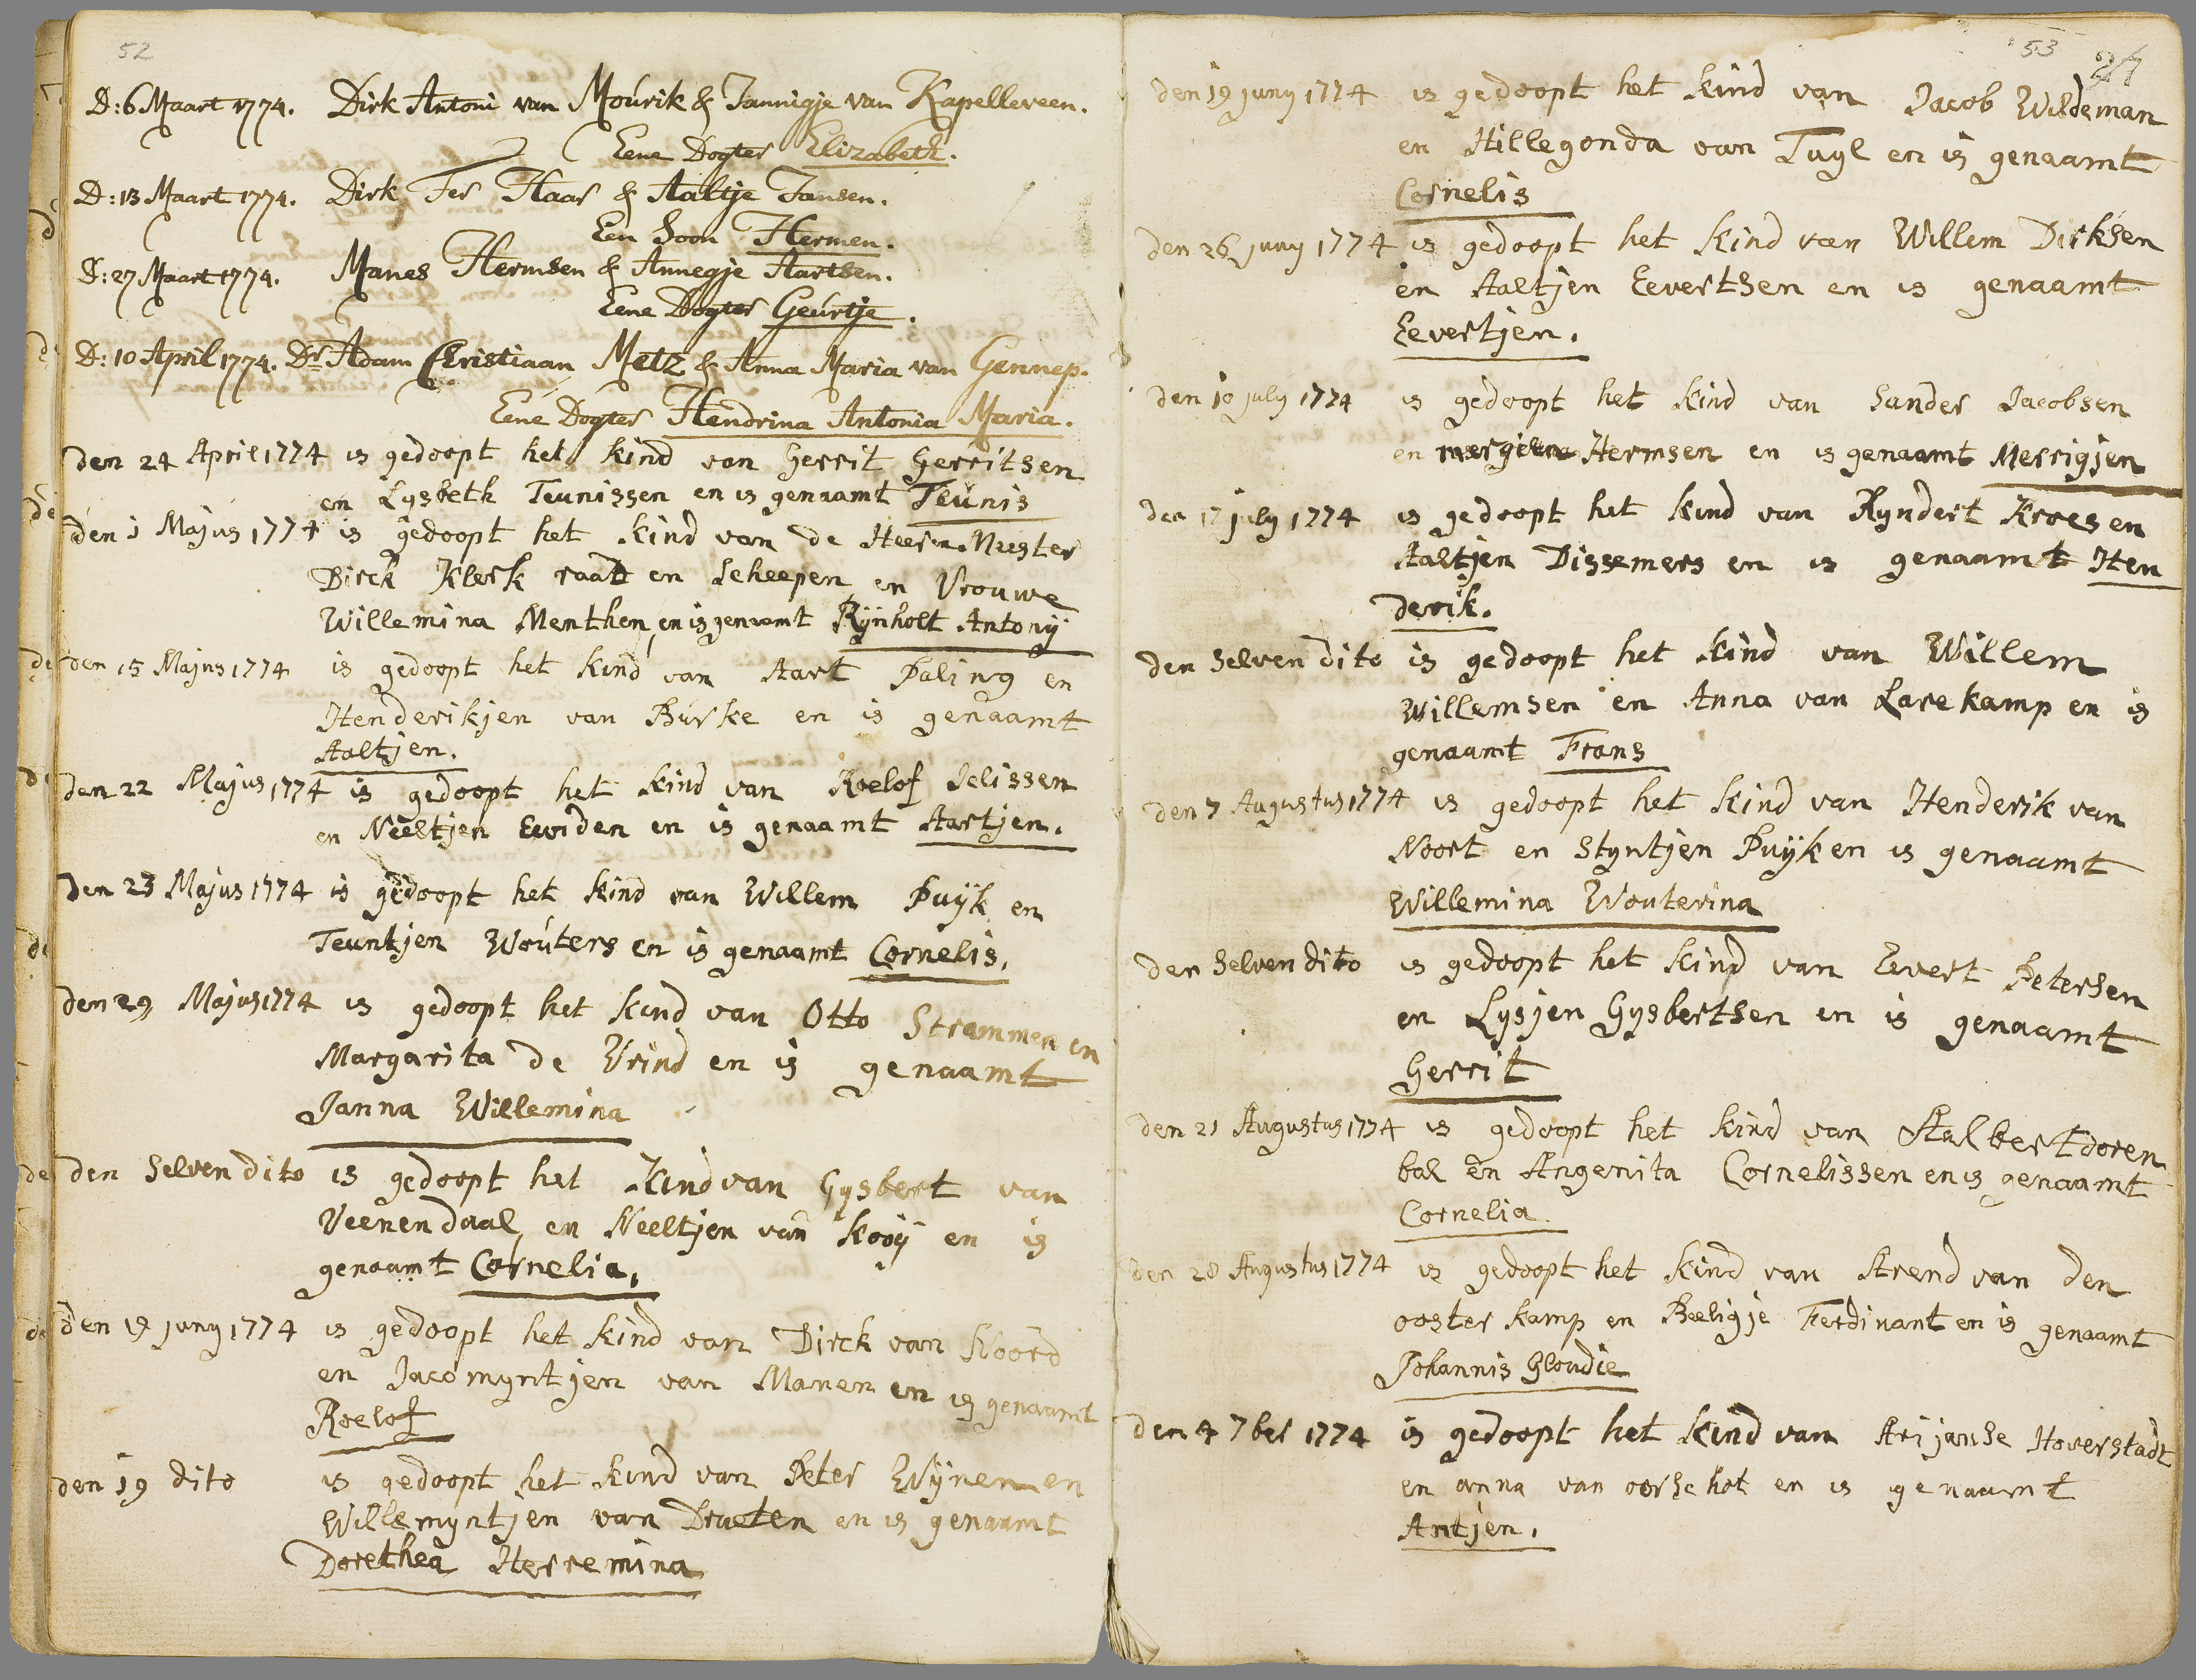 52
D: 6 Maart 1774. Dirk Antoni van Mourik & Jannigje van Kapelleveen.
Eene Dogter Elizabeth.
D: 13 Maart 1774. Dirk Ter Haar & Aaltje Jansen.
Een Soon Hermen.
D: 27 Maart 1774. Manes Hermsen & Annegje Aartsen.
Eene Dogter Geurtje.
D: 10 April 1774. Dr Adam Christiaan Metz & Anna Maria van Gennep.
Eene Dogter Hendrina Antonia Maria.
den 24 April 1774 is gedoopt het kind van Gerrit Gerritsen
en Lysbeth Teunissen en is genaamt Teunis
den 1 Majus 1774 is gedoopt het kind van de Heer en Meester
Dirck Klerk raat en Scheepen en Vrouwe
Willemina Menthen, en is genaamt Rynholt Antony
den 15 Majus 1774 is gedoopt het kind van Aart Paling en
Henderikjen van Burke en is genaamt
Aaltjen.
den 22 Majus 1774 is gedoopt het kind van Roelof Jelissen
en Neeltjen en is genaamt Aartjen.
den 23 Majus 1774 is gedoopt het kind van Willem Puijk en
Teuntjen Wouters en is genaamt Cornelis.
den 29 Majus 1774 is gedoopt het kind van Otto Strammen en
Margarita de Vrind en is genaamt
Janna Willemina
den Selven dito is gedoopt het Kind van Gysbert van
Veenendaal, en Neeltjen van Kooij en is
genaamt Cornelia.
den juny 1774 is gedoopt het kind van Dirck van Noord
en Jacomyntjen van Manen en is genaamt
Roelof
den 19 dito is gedoopt het kind van Peter Wijnen en
Willemyntjen van Drueten en is genaamt
Dorethea Herremina
53
den 19 juny 1774 is gedoopt het kind van Jacob Wildeman
en Hillegonda van Tuyl en is genaamt
Cornelis
den 26 juny 1774 is gedoopt het kind van Willem Dirksen
en Aaltjen Eevertsen en is genaamt
Eevertjen.
den 10 july 1774 is gedoopt het kind van Sander Jacobsen
en Hermsen en is genaamt Merrigjen
den 17 july 1774 is gedoopt het kind van Ryndert Kroes en
Aaltjen Dissemers en is genaamt Hen
derik.
den Selven dito is gedoopt het kind van Willem
Willemsen en Anna van Larekamp en is
genaamt Frans
den 7 Augustus 1774 is gedoopt het kind van Henderik van
Noort en Styntjen Puijk en is genaamt
Willemina Wouterina
den Selven dito is gedoopt het kind van Evert Petersen
en Lysjen Gysbertsen en is genaamt
Gerrit
den 21 Augustus 1774 is gedoopt het kind van Aalbert doren
bal en Angenita Cornelissen en is genaamt
Cornelia
den 28 Augustus 1774 is gedoopt het kind van Arend van den
ooster kamp en Beeligje Ferdinant en is genaamt
Johannis Gloudie
den 4 7ber 1774 is gedoopt het kind van Arijanse Hoverstadt
en anna van oorschot en is genaamt
Antjen.